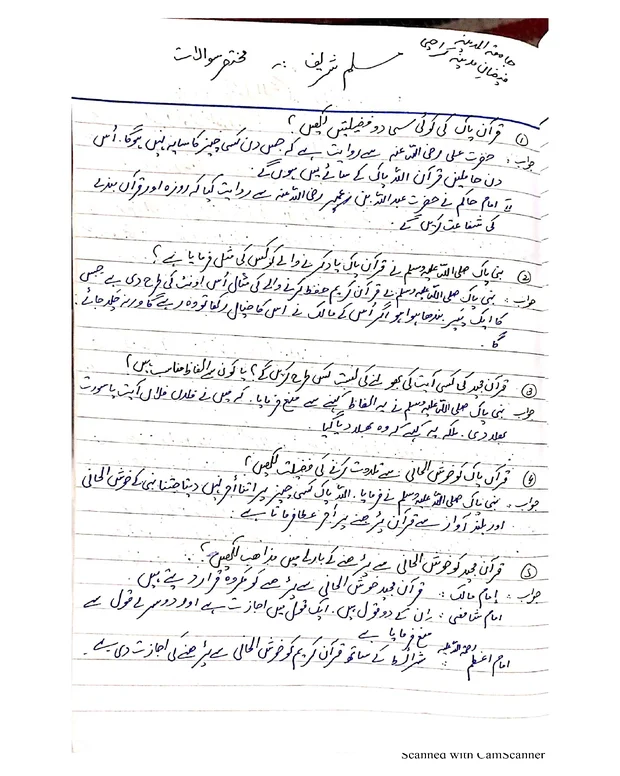 جامعۃ المدینہ
فیضانِ مدینہ کراچی
مسلم شریف :۔ مختصر سوالات
① قرآن پاک کی کوئی سی دو فضیلتیں لکھیں؟
جواب: حضرت علی رضی اللہ عنہ سے روایت ہے کہ جس دن کسی چیز کا سایہ نہیں ہوگا۔ اُس
دن حاملینِ قرآن اللہ پاک کے سائے میں ہوں گے۔
امام حاکم نے حضرت عبداللہ بن عمر رضی اللہ عنہ سے روایت کیا کہ روزہ اور قرآن بندے
کی شفاعت کریں گے۔
② نبی پاک صلی اللہ علیہ وسلم نے قرآن پاک یاد کرنے والے کو کس کی مثل فرمایا ہے؟
جواب: نبی پاک صلی اللہ علیہ وسلم نے قرآن کریم حفظ کرنے والے کی مثال اُس اونٹ کی طرح دی ہے جس
کا ایک پیر بندھا ہوا ہو اگر اُس کے مالک نے اُس کا خیال رکھا تو وہ رہے گا ورنہ چلا جائے
گا۔
③ قرآن مجید کی کسی آیت کی بھولنے کی نسبت کس طرح کریں گے؟ یا کون سے الفاظ مناسب ہیں؟
جواب نبی پاک صلی اللہ علیہ وسلم نے یہ الفاظ کہنے سے منع فرمایا۔ کہ میں نے فلاں فلاں آیت یا سورت
بھلا دی۔ بلکہ یہ کہے کہ وہ بھلا دیا گیا
④ قرآن پاک کو خوش الحانی سے تلاوت کرنے کی فضیلت لکھیں؟
جواب: نبی پاک صلی اللہ علیہ وسلم نے فرمایا۔ اللہ پاک کسی چیز پر اتنا اجر نہیں دیتا جتنا نبی کے خوش الحانی
اور بلند آواز سے قرآن پڑھنے پر اجر عطا فرماتا ہے۔
⑤ قرآن مجید کو خوش الحانی سے پڑھنے کے بارے میں مذاھب لکھیں؟
جواب: امام مالک: قرآن مجید خوش الحانی سے پڑھنے کو مکروہ قرار دیتے ہیں
امام شافعی: ان کے دو قول ہیں۔ ایک قول میں اجازت ہے اور دوسرے قول سے
منع فرمایا ہے
امام اعظم رحمۃ اللہ علیہ شرائط کے ساتھ قرآن کریم کو خوش الحانی سے پڑھنے کی اجازت دی ہے۔
Scanned with CamScanner